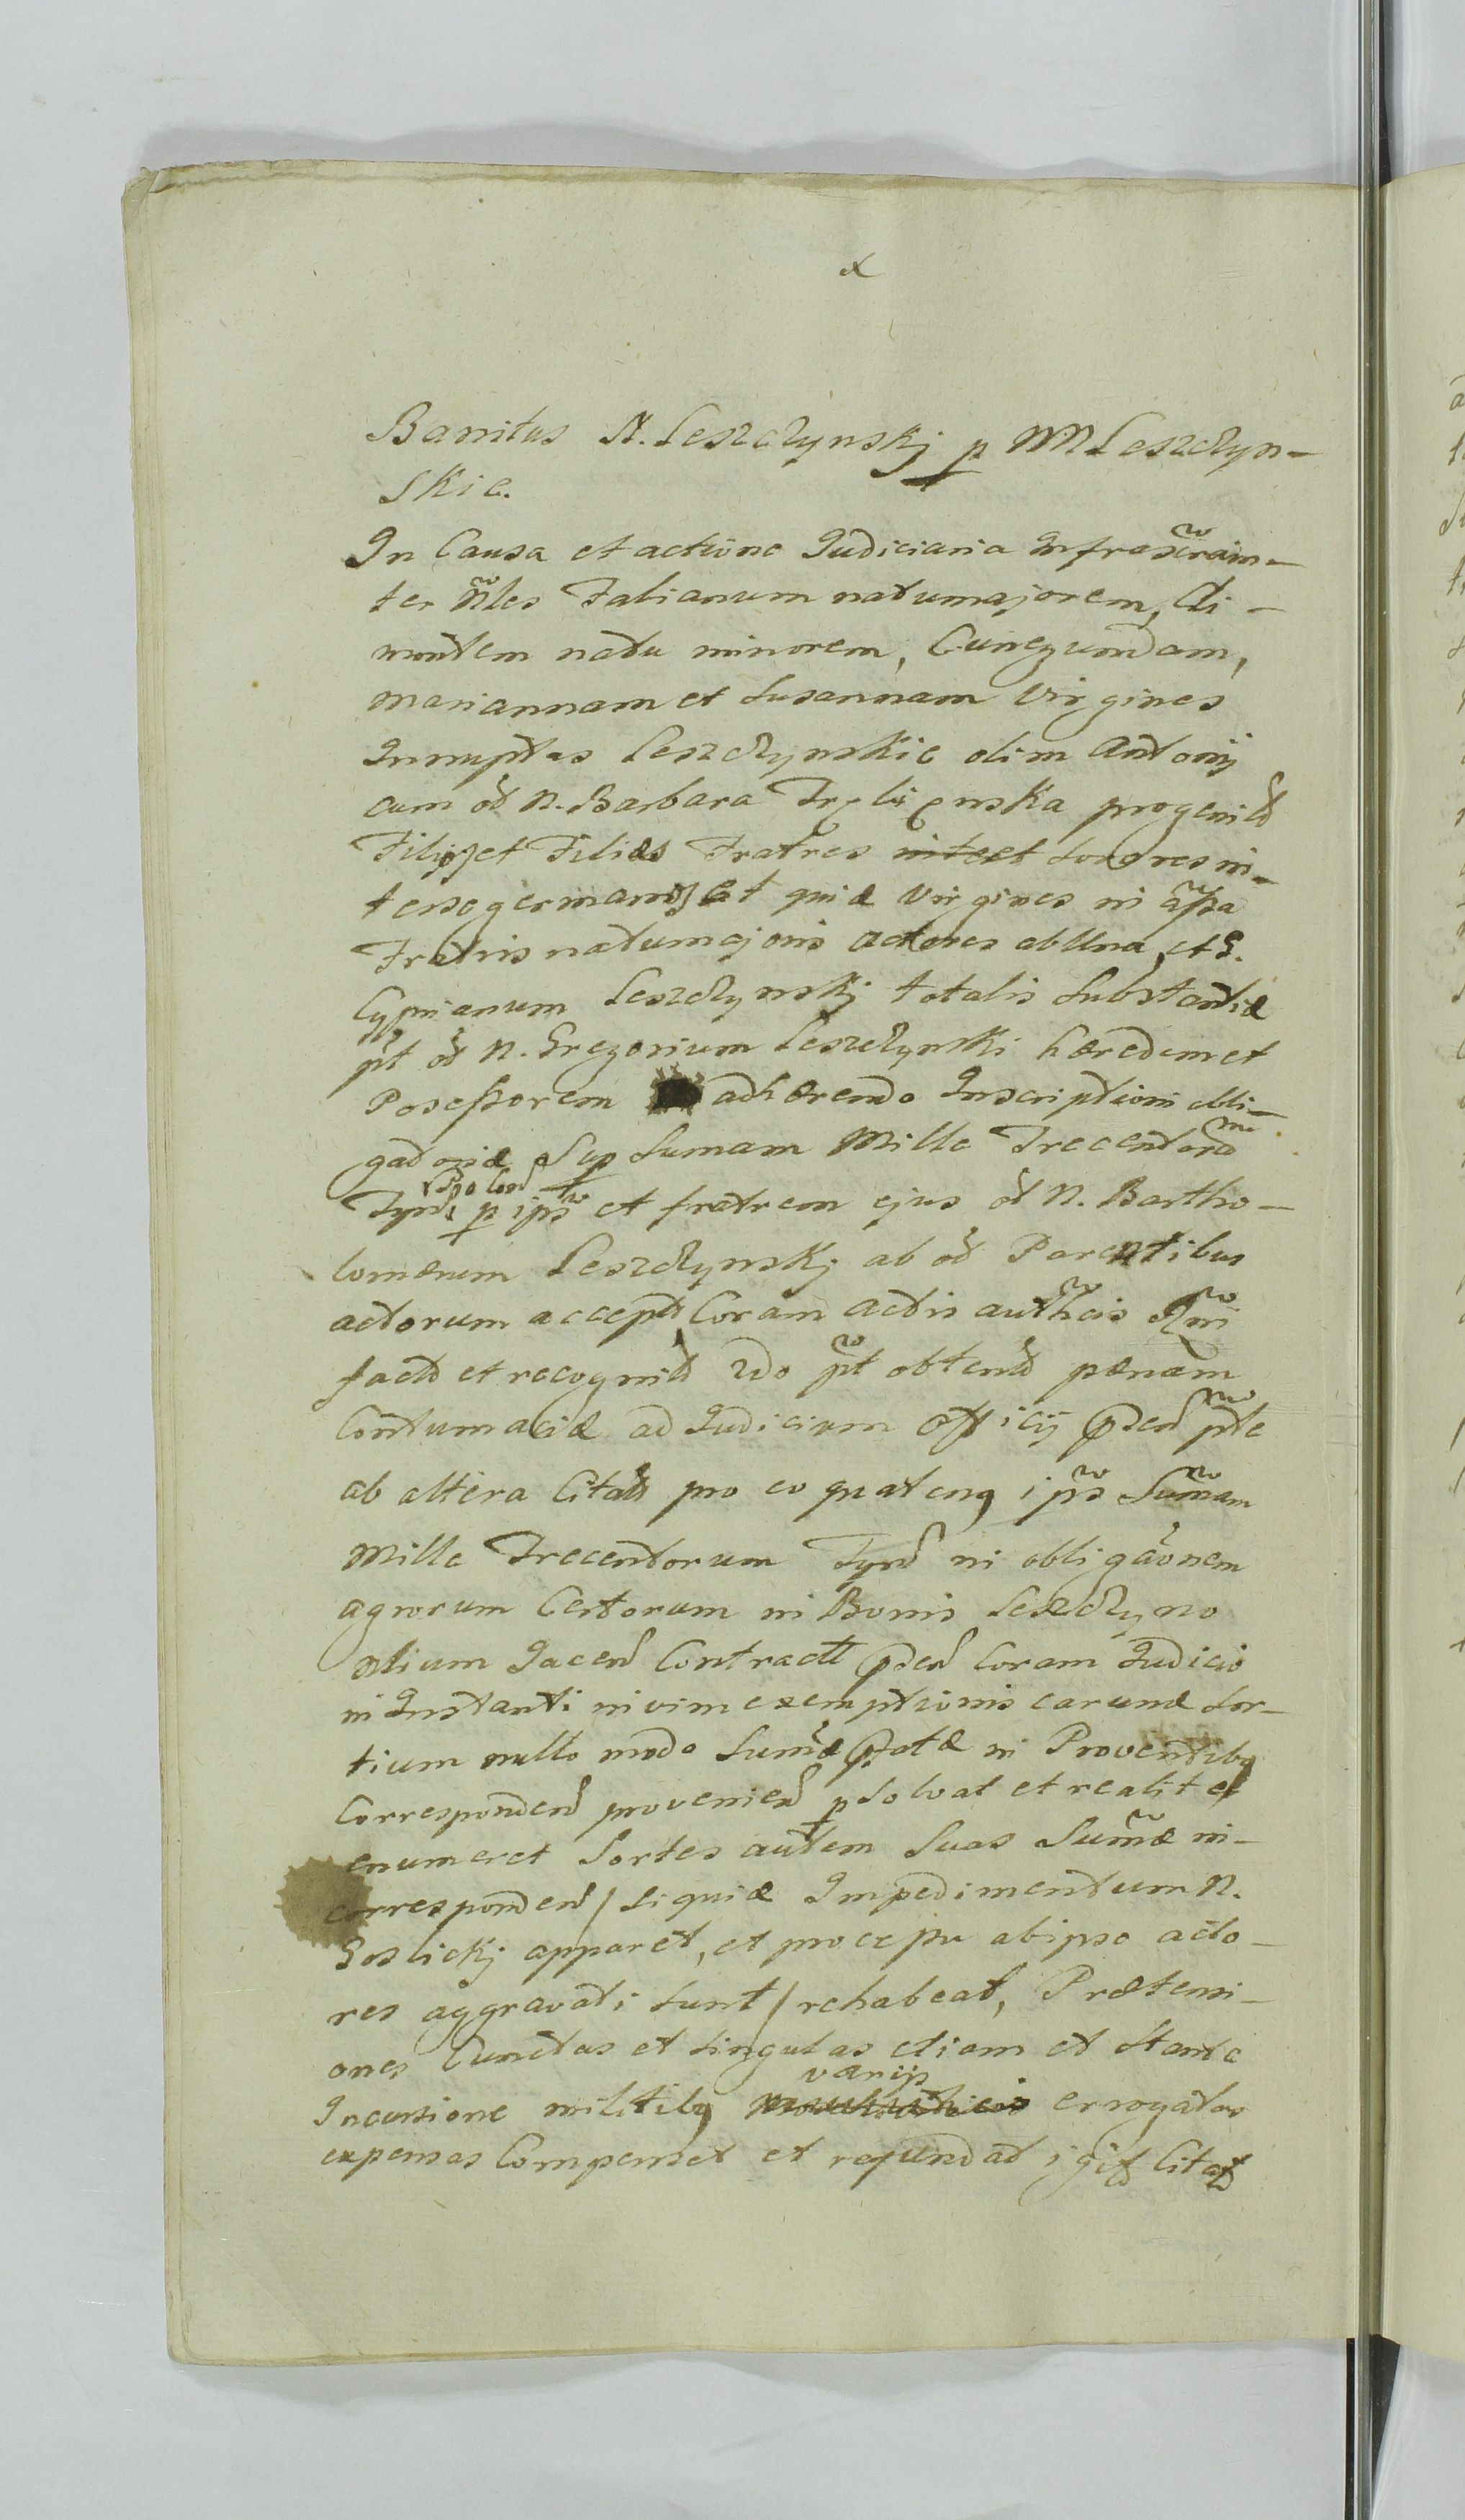 Banitus N. Leszczynskj p NN Leszczyn-
skie.
In Causa et actione Judiciaria Infrascrãin-
ter Ñles Fabianum natumajorem, Cli-
montem natu minorem, Cunegundam,
Mariannam et Susannam Virgines
Innuptas Leszczynskie olim Antonij
cum od N. Barbara progenit
Filios et Filias Fratres intert Sorores in-
ter se germanos et quia Virgines in
Fratris natumajoris actores ab Una, et G.
Cyprianum Leszczynskj totalis Substantiæ
pt od N. Gregorium Leszczynski hæredem et
Possessorem adhærendo Inscriptioni obli-
gatoriæ Sup Sumam Mille Trecentorũ
Tynf Polon p ips et fratrem ejus od N. Bartho-
lomæum Leszczynskj ab od Parentibus
actorum accept Coram actis authcis
fact et recognit pt obtent pænam
Contumaciæ ad Judicium Officij psen pte
ab altera Citat pro eo quatenq ips Sumam
Mille Trecentorum Tynf in obligãonem
agrorum Certorum in Bonis Leszczyno
Jacen Contract psen Coram Judicio
in Instanti in vim exemptionis earund Sor-
tium nullo modo Sumæ ptatæ in Proventibq
Corresponden provenien psolvat et realiter
enumeret Sortes autem Suas Sumæ in-
corresponden / siquiæ Impedimentum N.
Goslickj apparet, et processu abipso acto-
res aggravati sunt / rehabeat, Prætensi-
ones Cunctas et singulas etiam et Stante
Incursione militibq varijs errogatas
expensas Compenset et refundat igit Citat